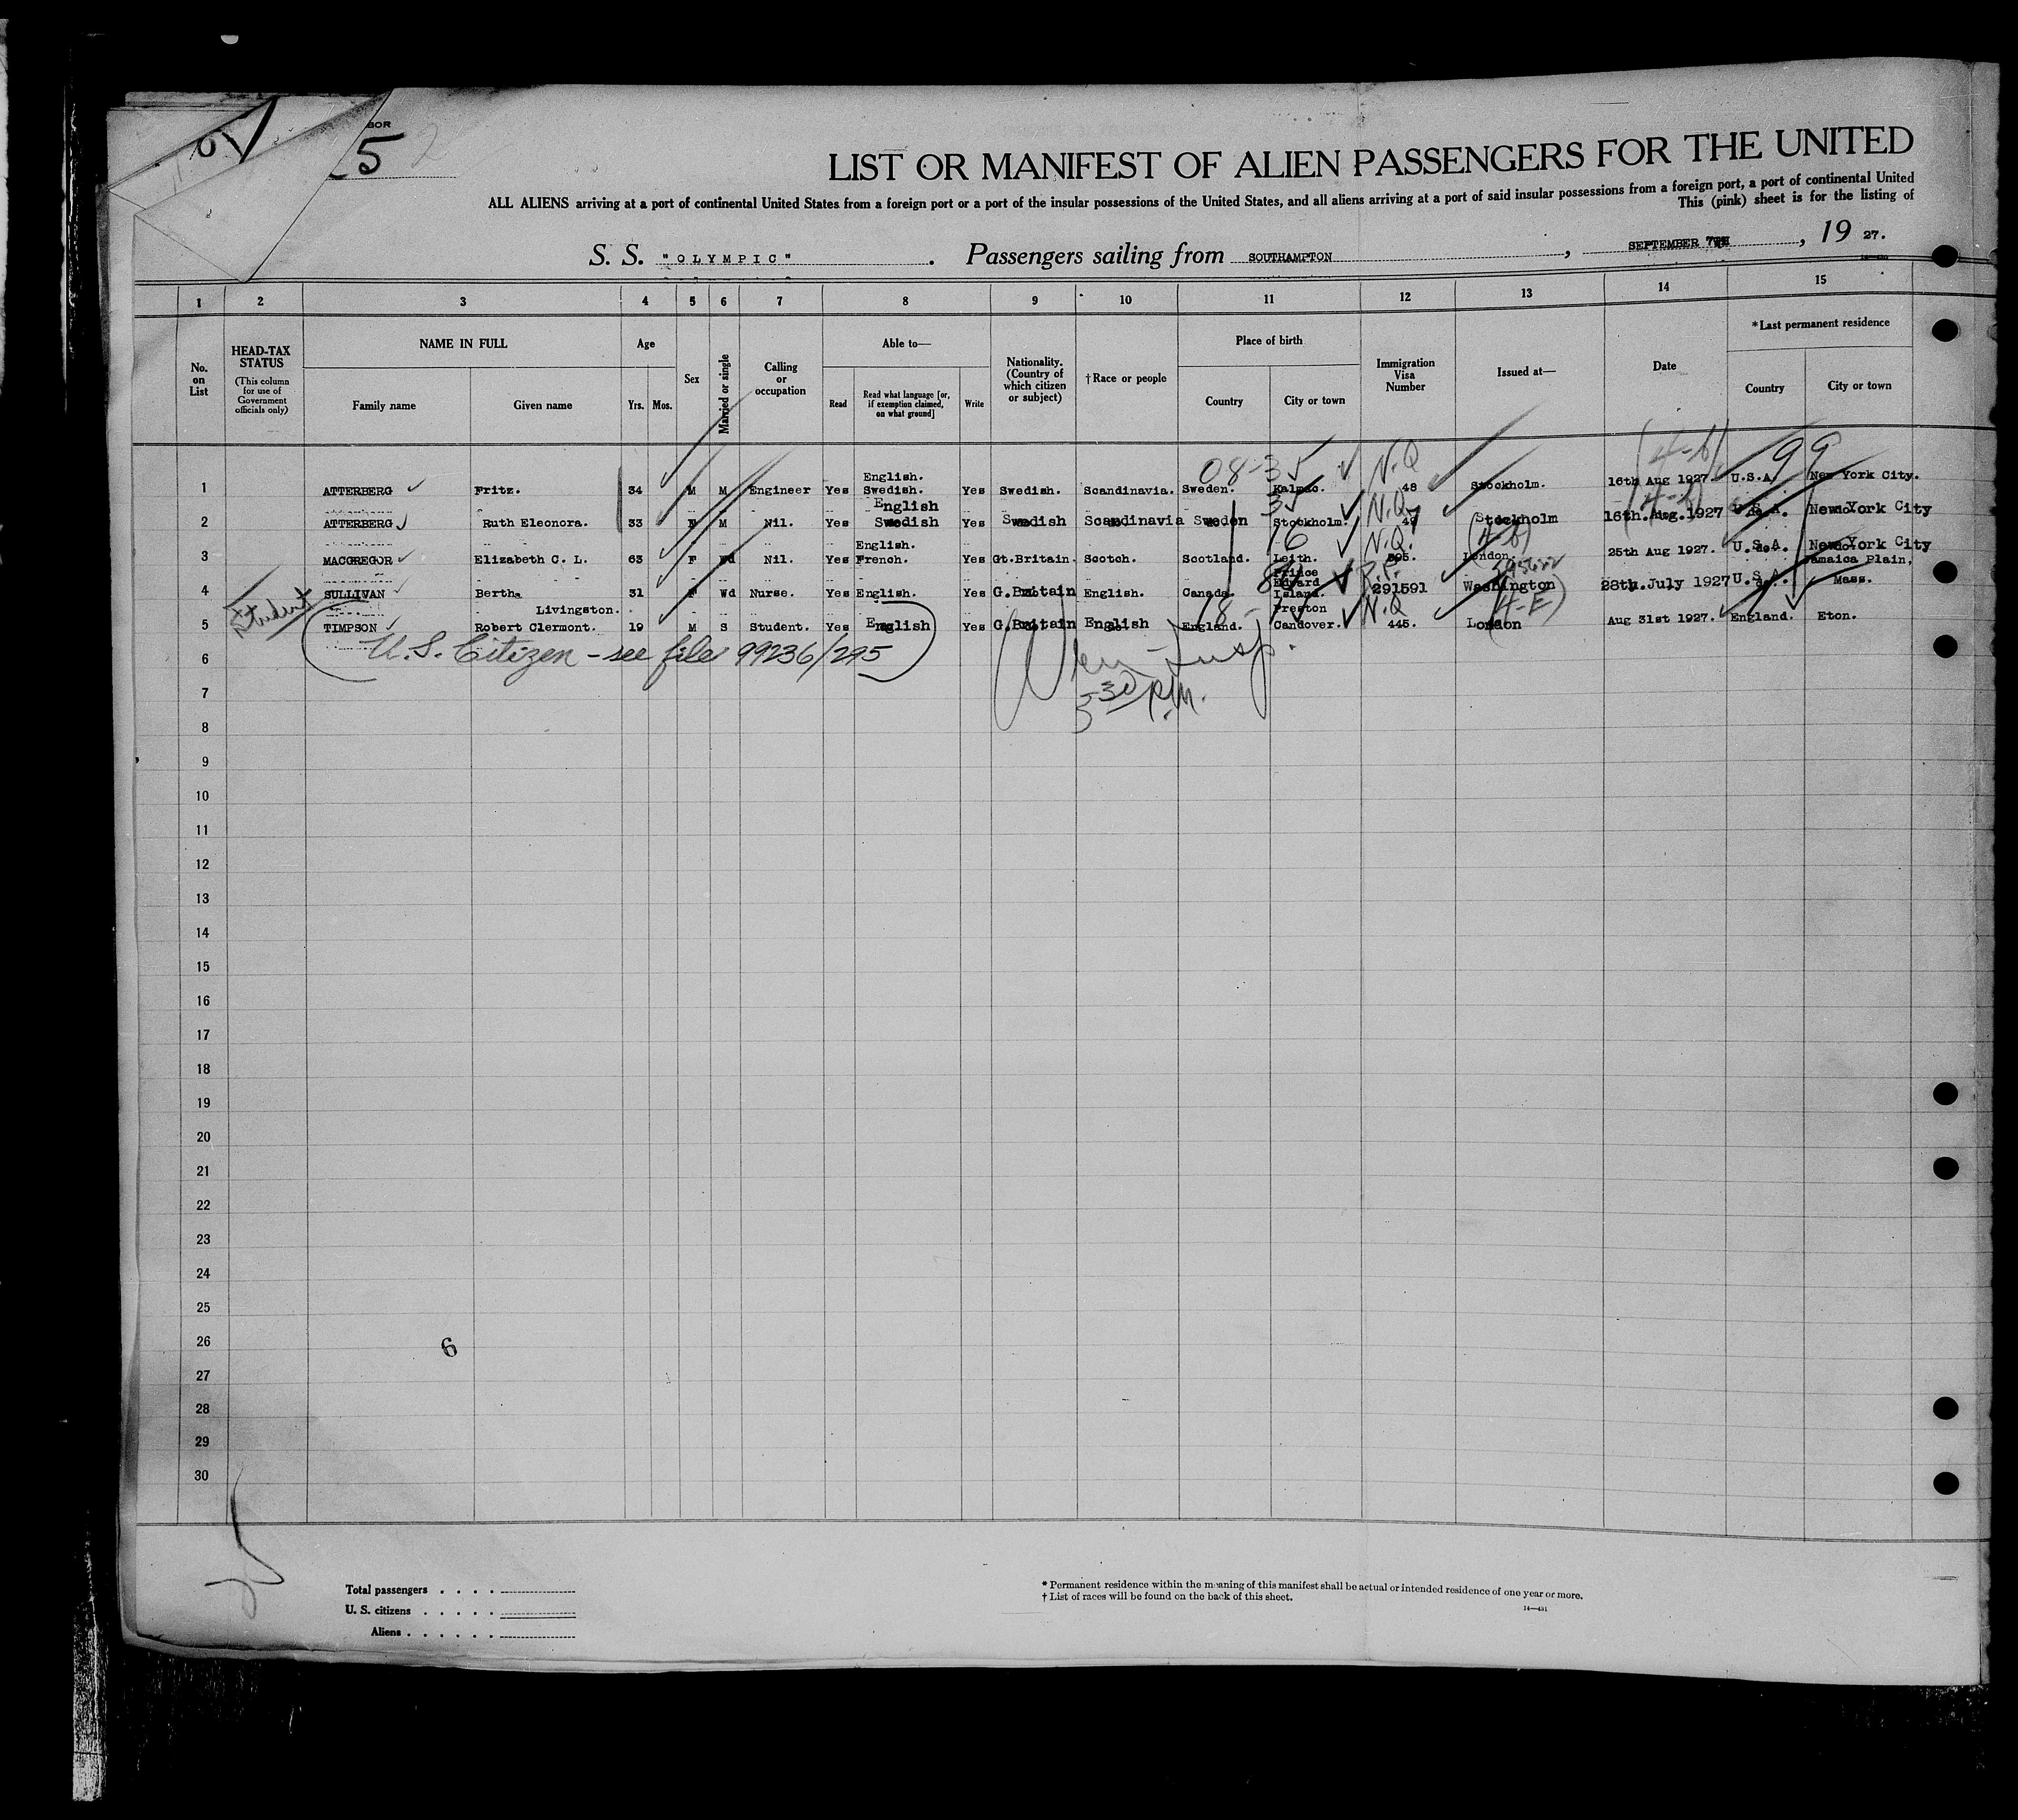 BOR
5
LIST OR MANIFEST OF ALIEN PASSENGERS FOR THE UNITED
ALL ALIENS arriving at a port of continental United States from a foreign port or a port of the insular possessions of the United States, and all aliens arriving at a port of said insular possessions from a foreign port, a port of continental United
This (pink) sheet is for the listing of
S. S. "OLYMPIC". Passengers sailing from SOUTHAMPTON, SEPTEMBER 7TH, 19 27.
1 2 3 4 5 6 7 8 9 10 11 12 13 14 15
No. on List
HEAD-TAX STATUS
(This column for use of Government officials only)
NAME IN FULL
Family name Given name
Age
Yrs. Mos.
Sex
Married or single
Calling or occupation
Able to—
Read
Read what language [or, if exemption claimed, on what ground]
Write
Nationality. (Country of which citizen or subject)
†Race or people
Place of birth
Country City or town
Immigration Visa Number
Issued at—
Date
*Last permanent residence
Country City or town
08-35 N.Q (4-b) 99
English.
1 ATTERBERG Fritz. 34 M M Engineer Yes Swedish. Yes Swedish. Scandinavia. Sweden. 48 Stockholm. 16th Aug 1927. U.S.A. New York City.
35 N.Q. (4-b)
English
2 ATTERBERG Ruth Eleonora. 33 F M Nil. Yes Swedish Yes Swedish Scandinavia Sweden Stockholm. 49 Stockholm 16th. Aug. 1927 U.S.A. New York City
16 N.Q. (4-b)
English.
3 MACGREGOR Elizabeth C. L. 63 F Wd Nil. Yes French. Yes Gt.Britain. Scotch. Scotland. Leith. 595. London. 25th Aug 1927. U.S.A. New York City
Prince Edward Island. R.P. Jamaica Plain,
4 SULLIVAN Bertha 31 F Wd Nurse. Yes English. Yes G.Britain English. Canada. 291591 Washington 28th.July 1927 U.S.A. Mass.
Student
Livingston. 18- Preston N.Q (4-E)
5 TIMPSON Robert Clermont. 19 M S Student. Yes English Yes G.Britain English England. Candover. 445. London Aug 31st 1927. England. Eton.
6 U.S. Citizen - see file 99236/295
Insp.
7 5 30 P.M.
8
9
10
11
12
13
14
15
16
17
18
19
20
21
22
23
24
25
26
6
27
28
29
30
Total passengers . . . .
U. S. citizens . . . . .
Aliens . . . . . .
* Permanent residence within the meaning of this manifest shall be actual or intended residence of one year or more.
† List of races will be found on the back of this sheet.
14—431